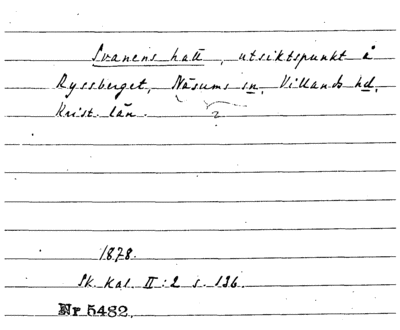 Svanens hatt, utsiktspunkt å
Ryssberget, Näsums sn, Villands hd,
Krist. län. ?
1878.
Sk. Kal. II:2 s. 136.
Nr 5482.